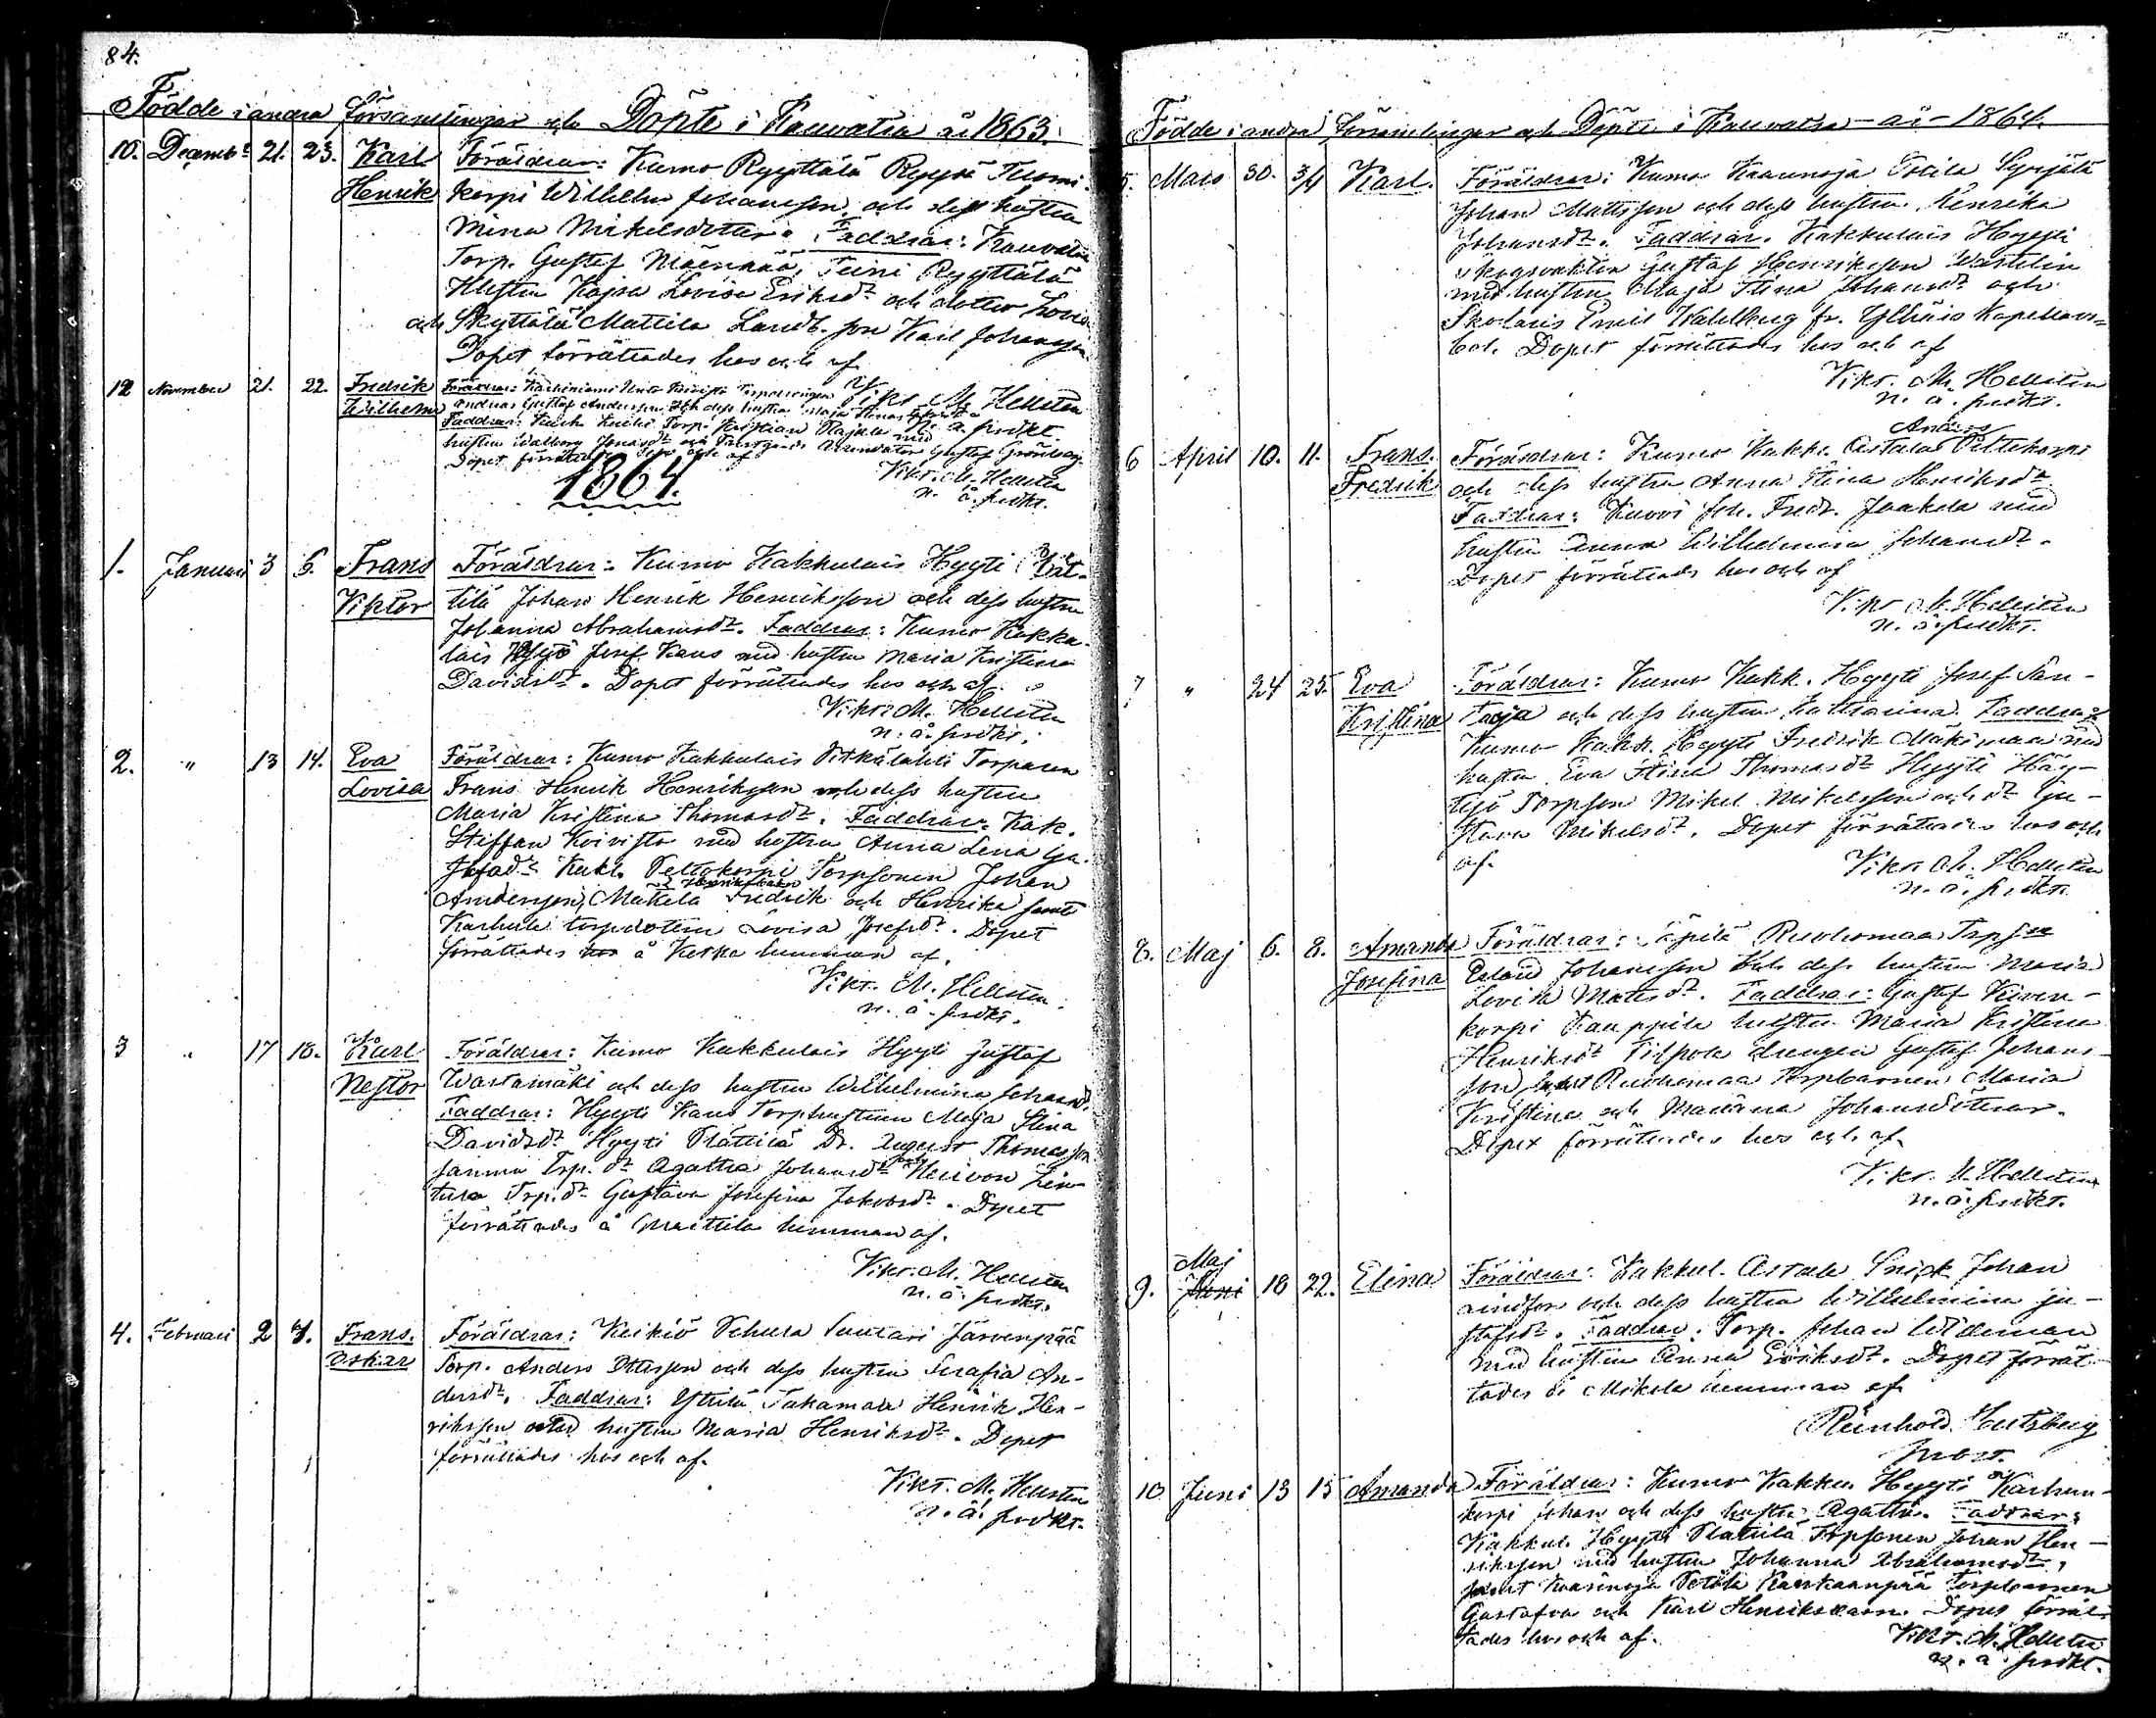 84.
Födde i andra församlingar och Döpte i Kauvatsa år 1863.
10. Decembr 21. 23. Karl Henrik Föräldrar: Kumo Ryyttälä Ryysä Tuomi-
korpi Wilhelm Johansson och dess hustru
Mina Mikelsdotter. Faddrar: Kauvatsa
Torp. Gustaf Mäenpää, Teini Ryyttälä
Hustru Kajsa Lovisa Eriksdr och dotter Lovisa
och Skyttälä Mattila Landb. son Karl Johansson
Dopet förrättades hos och af
Vikr. M. Hellsten
n. å. predkt.
12 November 21. 22. Fredrik Wilhelm Föräldrar:
Andreas Gustaf Andersson och dess hustru Maja Stina
Faddrar: Torp. Kristian Rajala med
hustru Walborg Jonasdr och Arrendator Gustaf Grönberg.
Dopet förrättades hos och af
Vikr. M. Hellsten
n. å. predkt.
1864.
1. Januari 3 6. Frans Viktor Föräldrar: Kumo Kakkulais Hyyti Plät-
tilä Johan Henrik Henriksson och dess hustru
Johanna Abrahamsdr. Faddrar: Kumo Kakku-
lais Hyyti Josef Kaus med hustru Maria Kristina
Davidsdr. Dopet förrättades hos och af
Vikr. M. Hellsten
n. å. predkt.
2. " 13 14. Eva Lovisa Föräldrar: Kumo Kakkulais Pitkälahti Torparen
Frans Henrik Henriksson och dess hustru
Maria Kristina Thomasdr. Faddrar: Kak.
Steffan Koivisto med hustru Anna Lena Gu-
stafsdr Kakk. Peltokorpi Torpsonen Johan
Andersson, Mattila Fredrik och Henrika samt
Karhula torpdottren Lovisa Josefsdr. Dopet
förrättades å Keska hemman af.
Vikr. M. Hellsten.
n. å. predkt.
3 " 17 18. Karl Nestor Föräldrar: Kumo Kakkulais Hyyti Gustaf
Wastamäki och dess hustru Wilhelmina Johansdr.
Faddrar: Hyyti Kaus Torphustrun Maja Stina
Davidsdr Hyyti Plättilä Dr. August Thomasson
samma Trp. dr Agatha Johansdr och Heivon Lin-
tusa Trp. dr Gustava Josefina Jakobsdr. Dopet
förrättades å Mattila hemman af.
Vikr. M. Hellsten
n. å. predkt.
4. Februari 2 7. Frans. Oskar Föräldrar: Keikiö Pehula Suutari Järvenpää
Torp. Anders Ottosson och dess hustru Serafia An-
dersdr. Faddrar: Yttilä Takamaa Henrik Hen-
riksson med hustru Maria Henriksdr. Dopet
förrättades hos och af.
Vikr. M. Hellsten
n. å. predkt.
Födde i andra församlingar och Döpte i Kauvatsa - år - 1864.
5. Mars 30. 3/4 Karl. Föräldrar: Kumo Kaurinoja Syrjälä
Johan Mattsson och dess hustru Henrika
Johansdr. Faddrar. Kakkulais Hyyti
skogsvaktare Gustaf Henriksson Wastelin
med hustru Maja Stina Johansdr och
Skolaris Emil Wahlberg fr. Ylistaro Kapellans-
bol. Dopet förrättades hos och af
Vikr. M. Hellsten
n. å. predkt.
6 April 10. 11. Frans. Fredrik Föräldrar: Kumo Kakk. Astala Peltokorpi Anders
och dess hustru Anna Stina Henriksdr
Faddrar: Kuoni Joh. Fredr. Jaakola med
hustru Anna Wilhelmina Johansdr.
Dopet förrättades hos och af
Vikr. M. Hellsten
n. å. predkt.
7 " 24 25. Eva Kristina Föräldrar: Kumo Kakk. Hyyti Josef San-
taoja och dess hustru Katharina. Faddrar:
Kumo Kakk. Hyyti Fredrik Mäkimaa med
hustru Eva Stina Thomasdr Hyyti Häy-
tijö Torpson Mikel Mikelsson och dr Gu-
stava Mikelsdr. Dopet förrättades hos och
af.
Vikr. M. Hellsten
n. å. predkt.
8. Maj 6. 8. Amanda Josefina Föräldrar: Säpilä Ruohomaa Trpson
Erland Johansson och dess hustru Maria
Lovisa Matsdr. Faddrar: Gustaf Kiven-
korpi Kauppila hustru Maria Kristina
Henriksdr Pilpola drengen Gustaf Johans-
son samt Ruohomaa Torpbarnen Maria
Kristina och Mariana Johansdöttrar.
Dopet förrättades hos och af.
Vikr. M. Hellsten
n. å. predkt.
9. Maj 18 22. Elina Föräldrar: Kakkul. Astala Snick Johan
Lindfors och dess hustru Wilhelmina Gu-
stafsdr. Faddrar: Torp. Johan Wideman
med hustru Anna Eriksdr. Dopet förrät-
tades å Mikola hemman af
Reinhold Hertzberg
prost.
10 Juni 13 15 Amanda Föräldrar: Kumo Kakku. Hyyti Karhun-
korpi Johan och dess hustru Agatha. Faddrar:
Kakkul. Hyyti Plättilä Torpsonen Johan Hen-
riksson med hustru Johanna Abrahamsdr,
samt Kaurinoja Torpbarnen
Gustafva och Karl Henriksbarn. Dopet förrät-
tades hos och af.
Vikr. M. Hellsten
n. å. predkt.